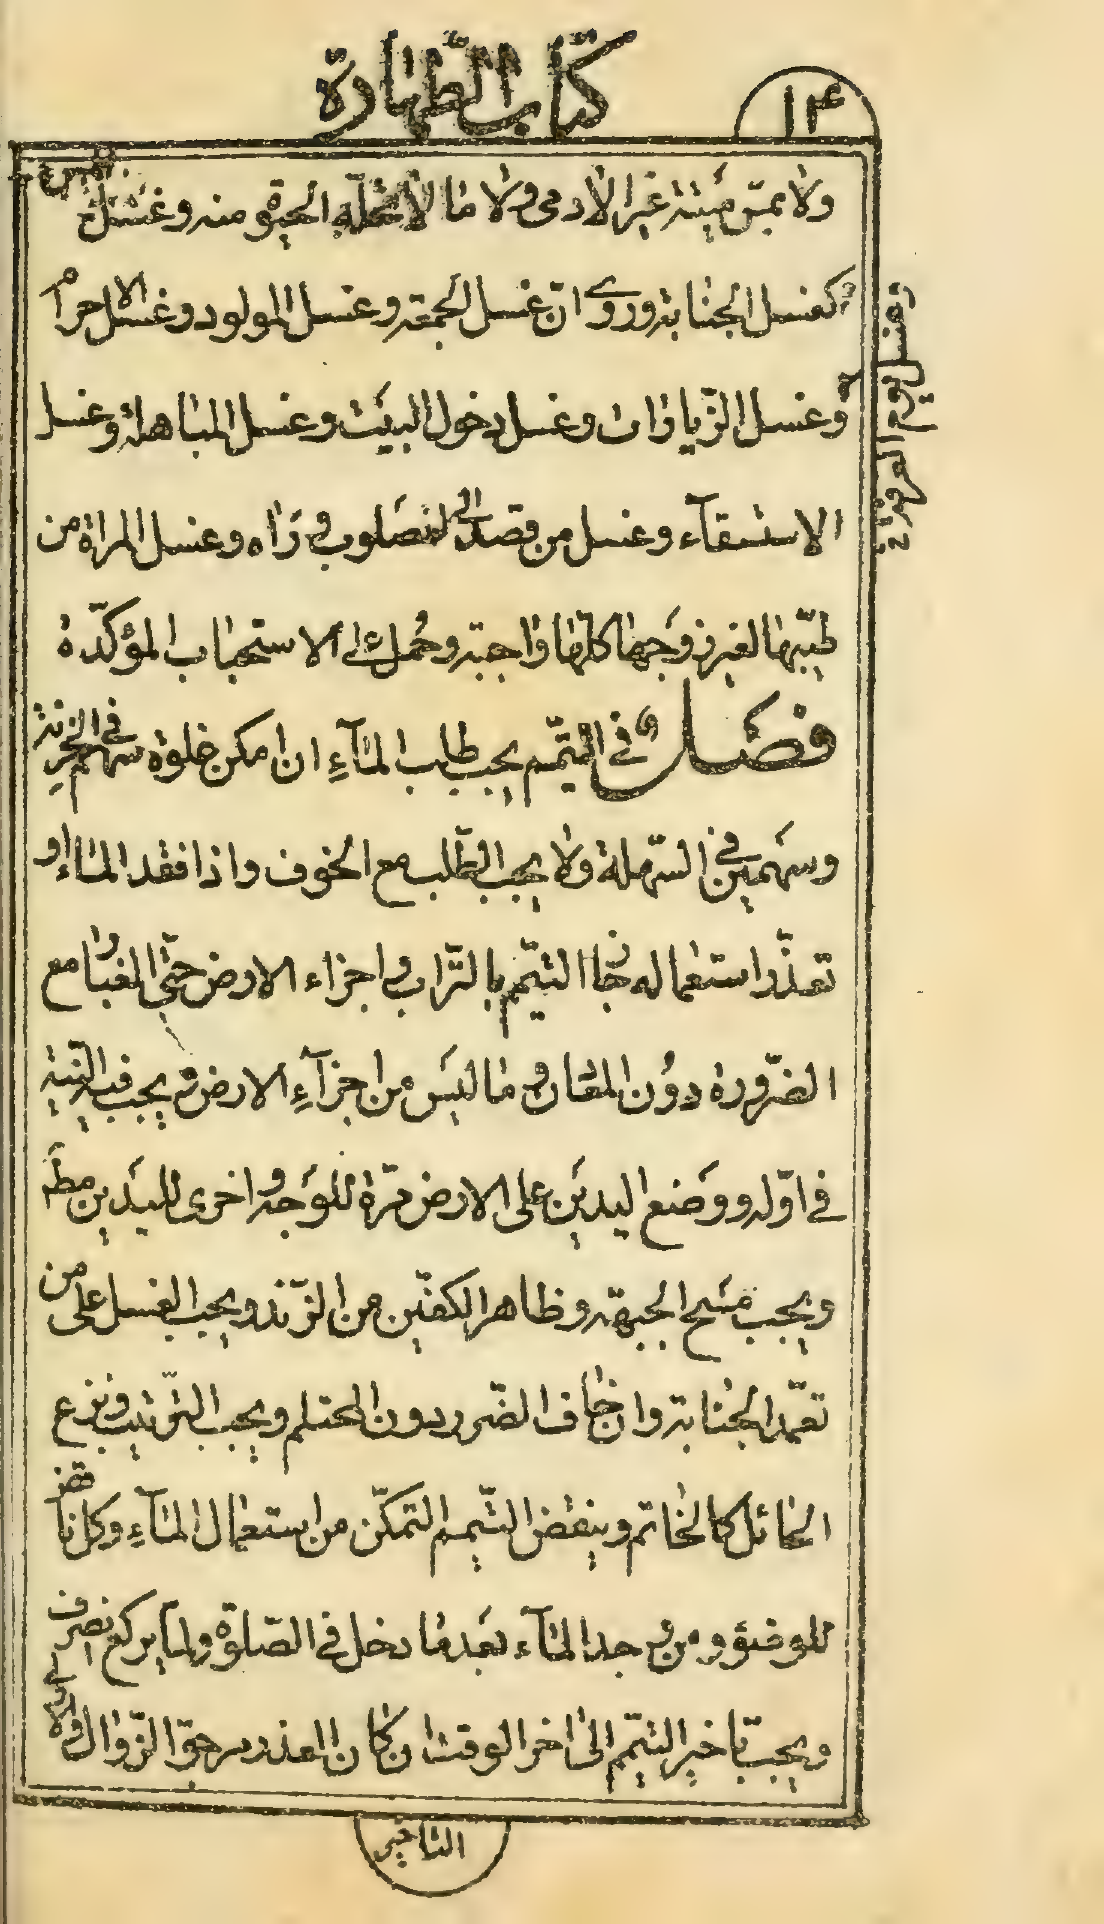 كتاب الطهارة
١٤
ولا بمسّ ميتة غير الادمى ولا ما لا تحلّه الحيوة منه وغسل المسّ
كغسل الجنابة وروى ان غسل الجمعة وغسل المولود وغسل الاحرام
وغسل يوم العرفة
وغسل الزّيارات وغسل دخول البيت وغسل المباهلة وغسل
الاستسقآء وغسل من قصد الى مصلوب ورَاه وغسل المراة من
طيبها لغير زوجها كلها واجبة وحُمل على الاستحباب المؤكّدة
فصل في التيمّم يجب طلب المآءِ ان امكن غلوة سهم في الحَزِنة
وسهمين في السّهلة ولا يجب الطّلب مع الخوف واذا فقد الماء او
تعذّر استعماله جاز التيمّم بالتّراب واجزاء الارض حتّى الغبار مع
الضّرورة دوُن المعادن وما ليَس من اجزآءِ الارض ويجب فيه النّية
في اوّله ووَضع اليدين على الارض مرّة للوَجه واخرى لليدين مط
ويجب مسَح الجبهة وظاهر الكفّين من الزّند ويجب الغسل على من
تعمّد الجنابة وان خاف الضّرر دون المحتلم ويجب التّرتيب ونزع
الحائل كالخاتم وينقض التّيمم التمكّن من استعمال المآءِ وكل ناقض
للوضوء ومن وجد المآء بعَدما دخل في الصّلوة ولمّا يركع انصرف
ويجب تاخير التيمّم الى اخر الوقت ان كان العذر مرجوّ الزّوال والا
التاخير